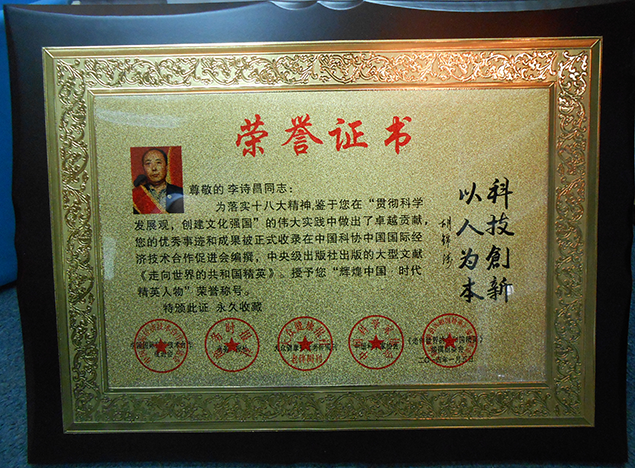 荣誉证书
尊敬的 李诗昌同志:
为落实十八大精神,鉴于您在“贯彻科学
发展观,创建文化强国”的伟大实践中做出了卓越贡献,
您的优秀事迹和成果被正式收录在中国科协中国国际经
济技术合作促进会编撰,中央级出版社出版的大型文献
《走向世界的共和国精英》。授予您“辉煌中国·时代
精英人物”荣誉称号。
特颁此证 永久收藏
科技創新
以人为本
胡锦涛